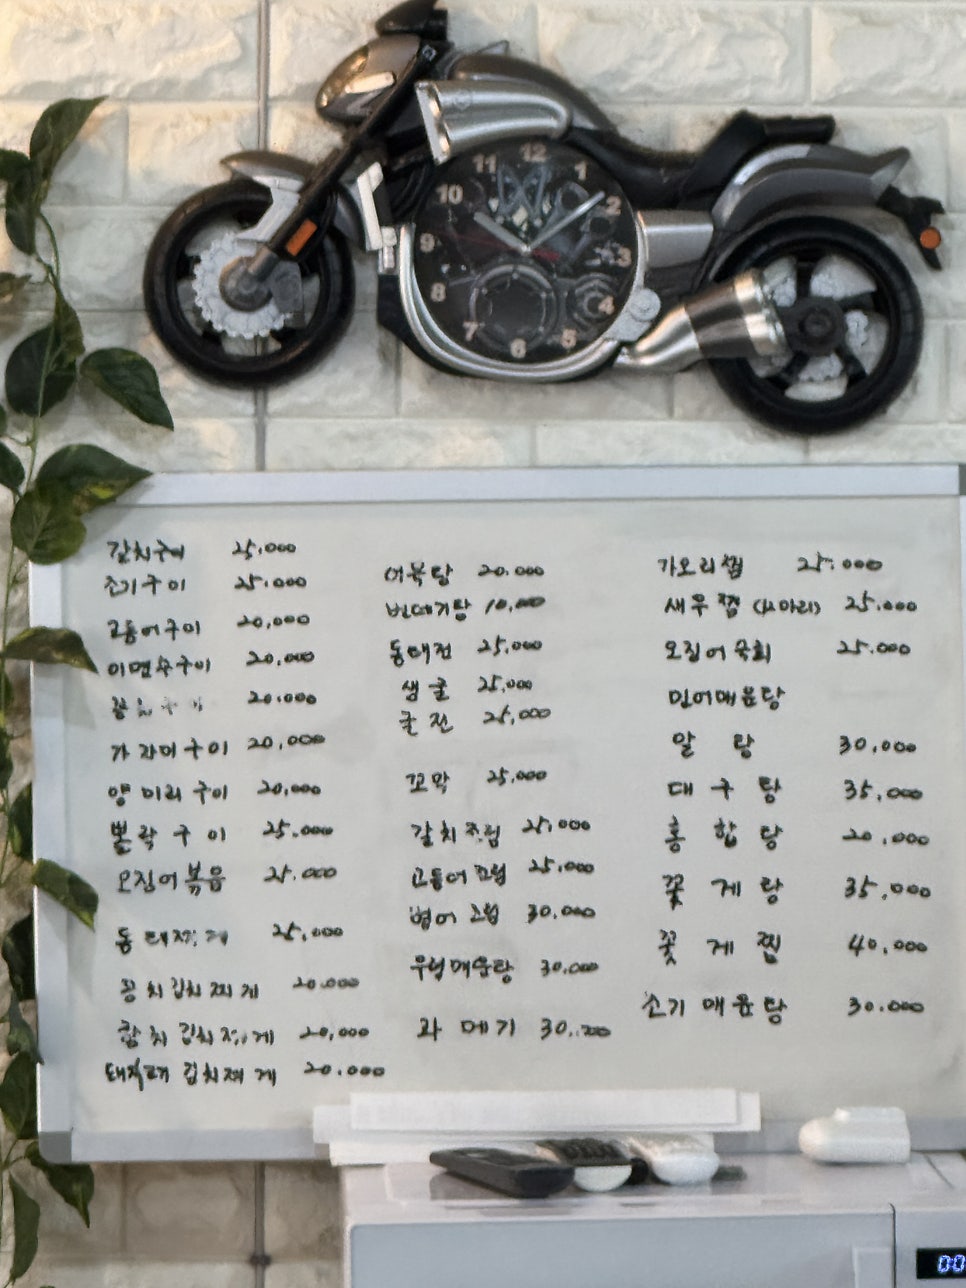 갈치구이 25.000
조기구이 25.000
고등어구이 20,000
이면수구이 20,000
20.000
가자미구이 20,000
양미리구이 20,000
뽈락구이 25.000
오징어볶음 25.000
동태찌게 25,000
꽁치김치찌게 20.000
참치김치찌게 20,000
돼지고기김치찌게 20.000
어묵탕 20.000
번데기탕 10,000
동태전 25,000
생굴 25,000
굴전 25,000
꼬막 25,000
갈치조림 25,000
고등어조림 25,000
병어조림 30.000
우럭매운탕 30.000
과메기 30.000
가오리찜 25.000
새우찜 (20마리) 25.000
오징어숙회 25.000
민어매운탕
알탕 30.000
대구탕 35,000
홍합탕 20,000
꽃게탕 35,000
꽃게찜 40.000
조기매운탕 30.000
12
1
2
3
4
5
6
7
8
9
10
11
00